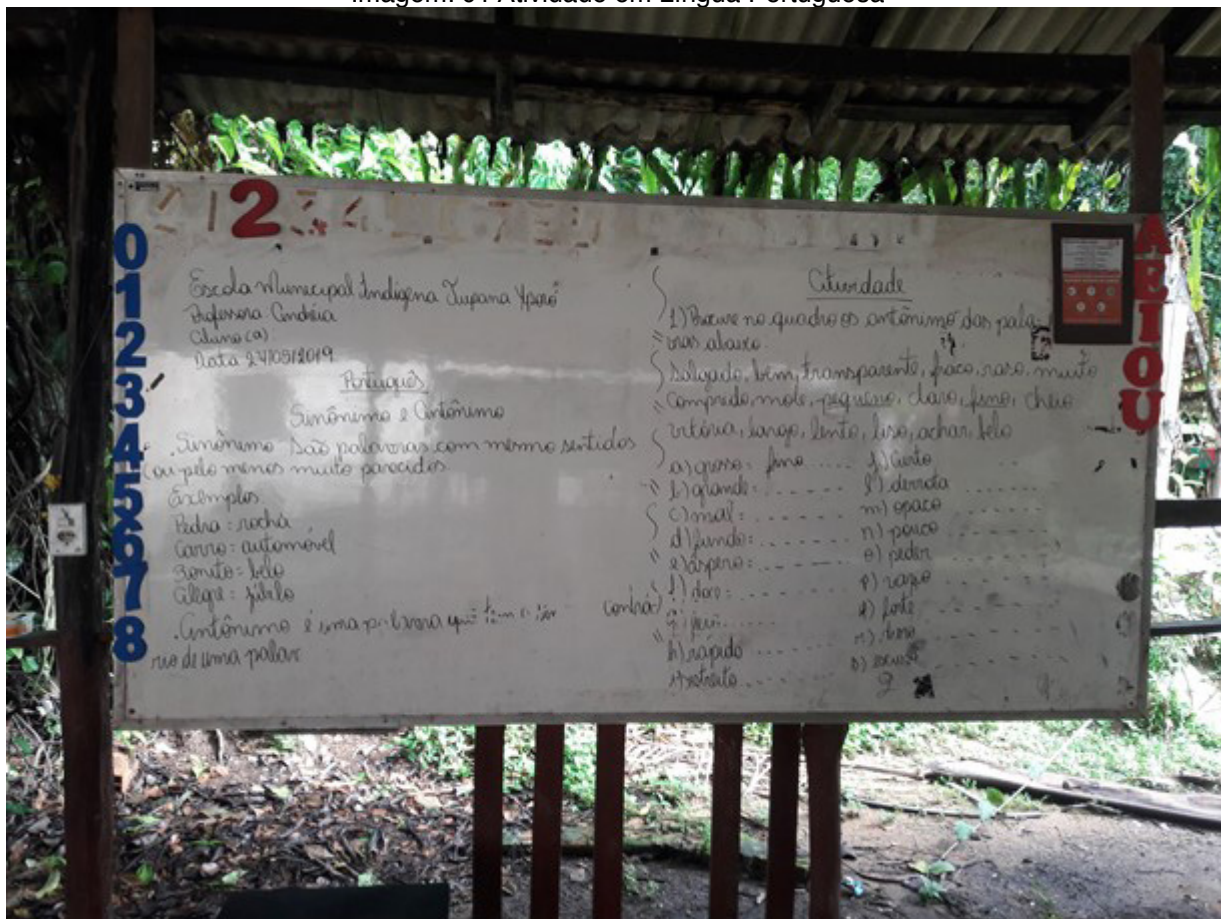 Imagem: 01 Atividade em Língua Portuguesa
2
0
1
2
3
4
5
6
7
8
Escola Municipal Indígena Tupana Yporó
Professora Andréia
Aluno(a)
Data 27/05/2019
Português
Sinônimo e Antônimo
. Sinônimo São palavras com mesmo sentidos
ou pelo menos muito parecidos.
Exemplos
Pedra: rocha
Carro: automóvel
Bonito: belo
Alegre: júbilo
. Antônimo é uma palavra que tem contrá
rio de uma palav
Atividade
1) Procure no quadro os antônimo das pala
vras abaixo.
Salgado, bem, transparente, fraco, raso, muito
comprido, mole, pequeno, claro, fino, cheio
vitória, largo, lento, liso, achar, belo
a) grosso: fino
b) grande:
c) mal:
d) fundo:
e) áspero:
f) doce:
g) feio
h) rápido
i) estreito
j) curto
l) derrota
m) opaco
n) pouco
o) peder
p) vazio
q) forte
r) duro
s) escuro
A
E
I
O
U